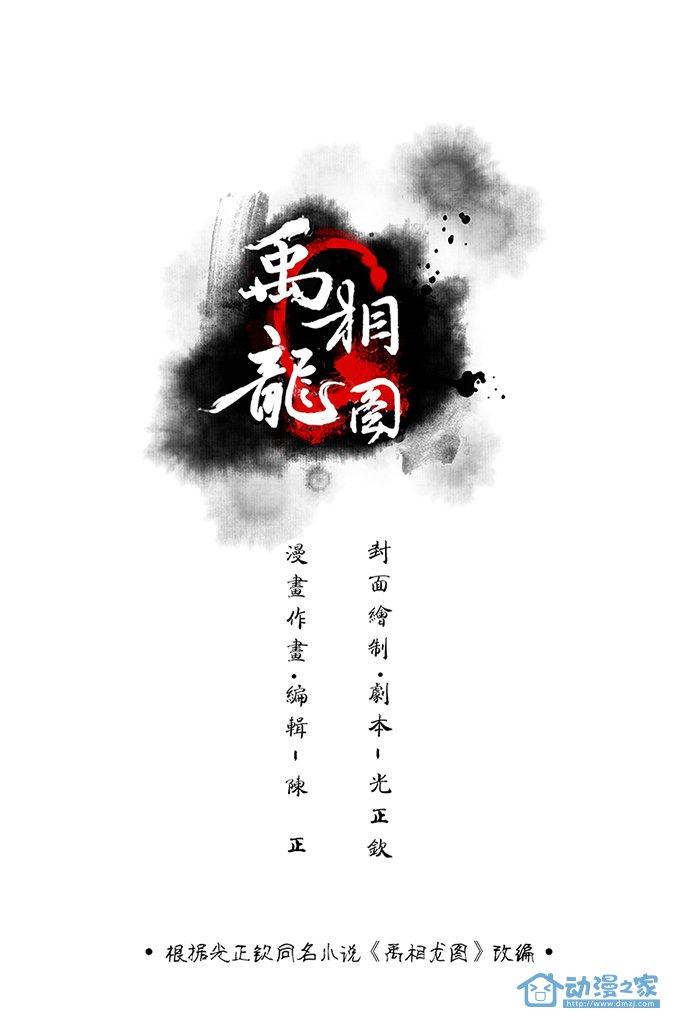 禹相
龍图
封面繪制·劇本-光正欽
漫畫作畫·編輯-陳 正
·根据光正钦同名小说《禹相龙图》改编·
动漫之家
http://www.dmzj.com